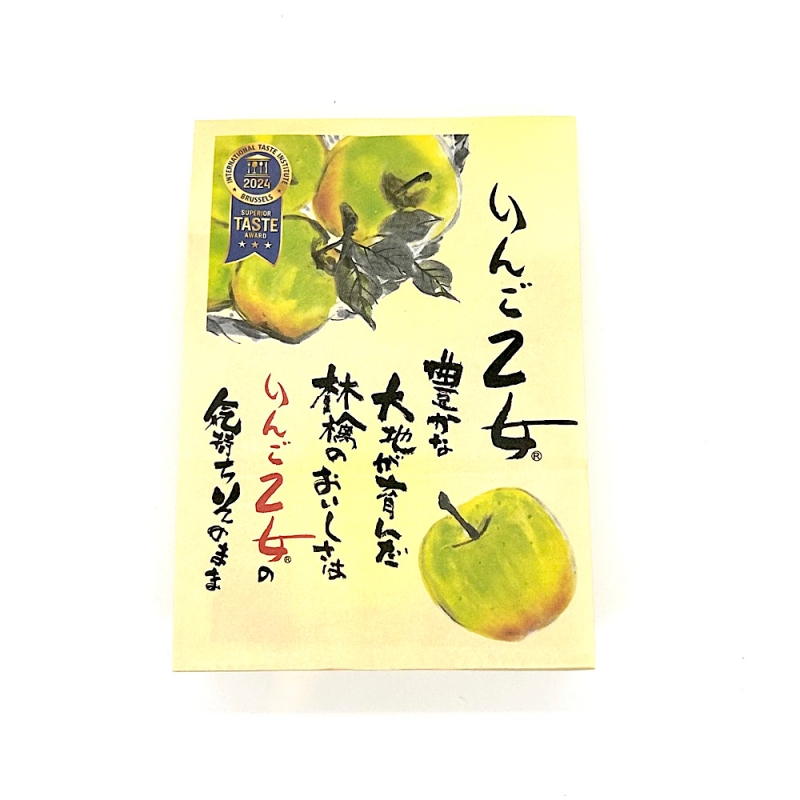 りんご乙女®
豊かな
大地が育んだ
林檎のおいしさは
りんご乙女®の
気持ちそのまま
INTERNATIONAL TASTE INSTITUTE
2024
BRUSSELS
SUPERIOR
TASTE
AWARD